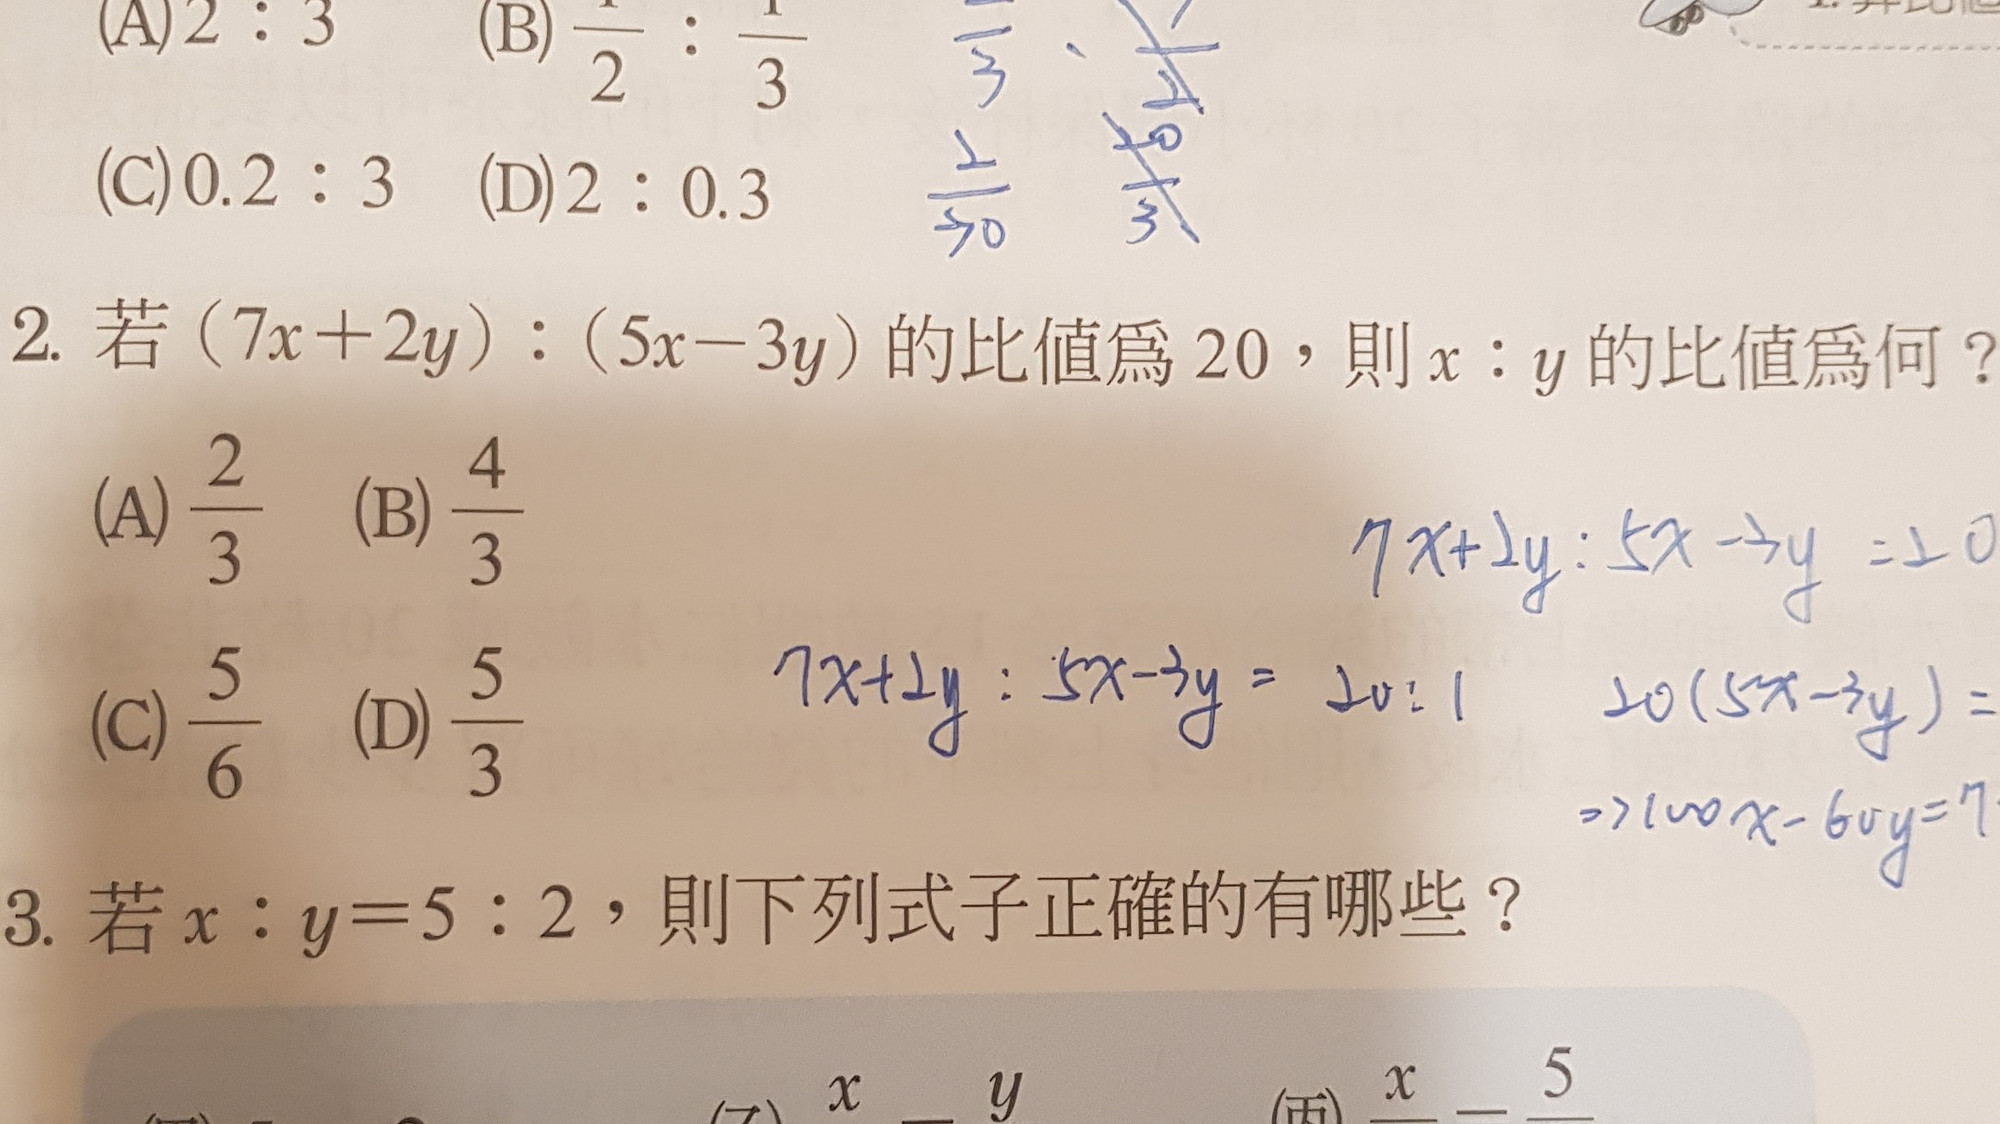 (A) 2：3 (B) 1/2：1/3
(C) 0.2：3 (D) 2：0.3
2/30
20/3
2. 若（7x＋2y）：（5x－3y）的比值爲 20，則 x：y 的比值爲何？
(A) 2/3 (B) 4/3
7x+2y : 5x-3y = 20
(C) 5/6 (D) 5/3
7x+2y : 5x-3y = 20:1
20(5x-3y) =
=> 100x - 60y = 7
3. 若 x：y＝5：2，則下列式子正確的有哪些？
(乙) x = y
(丙) x = 5